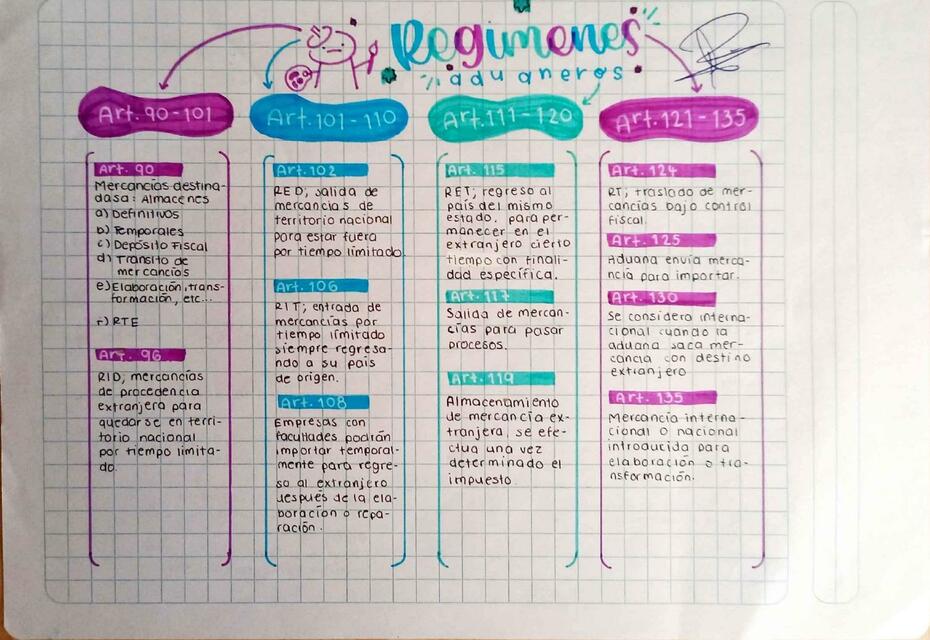 Regimenes
aduaneros
Art. 90-101
Art. 90
Mercancías destina-
dasa: Almacenes
a) Definitivos
b) Temporales
c) Depósito Fiscal
d) Tránsito de
mercancías
e) Elaboración, trans-
formación, etc...
f) RTE
Art. 96
RID; mercancías
de procedencia
extranjera para
quedarse en terri-
torio nacional
por tiempo limita-
do.
Art. 101-110
Art. 102
RED; salida de
mercancias de
territorio nacional
para estar fuera
por tiempo limitado.
Art. 106
RIT; entrada de
mercancías por
tiempo limitado
siempre regresa-
ndo a su país
de origen.
Art. 108
Empresas con
facultades podrán
importar temporal-
mente para regre-
so al extranjero
después de la ela-
boración o repa-
ración.
Art. 111-120
Art. 115
RET; regreso al
país del mismo
estado. para per-
manecer en el
extranjero cierto
tiempo con finali-
dad específica.
Art. 117
Salida de mercan-
cías para pasar
procesos.
Art. 119
Almacenamiento
de mercancía ex-
tranjera, se efe-
ctua una vez
determinado el
impuesto.
Art. 121-135
Art. 124
RT; traslado de mer-
cancías bajo control
fiscal.
Art. 125
Aduana envía merca-
ncía para importar.
Art. 130
Se considera interna-
cional cuando la
aduana saca mer-
cancía con destino
extranjero
Art. 135
Mercancía interna-
cional o nacional
introducida para
elaboración o tra-
nsformación.